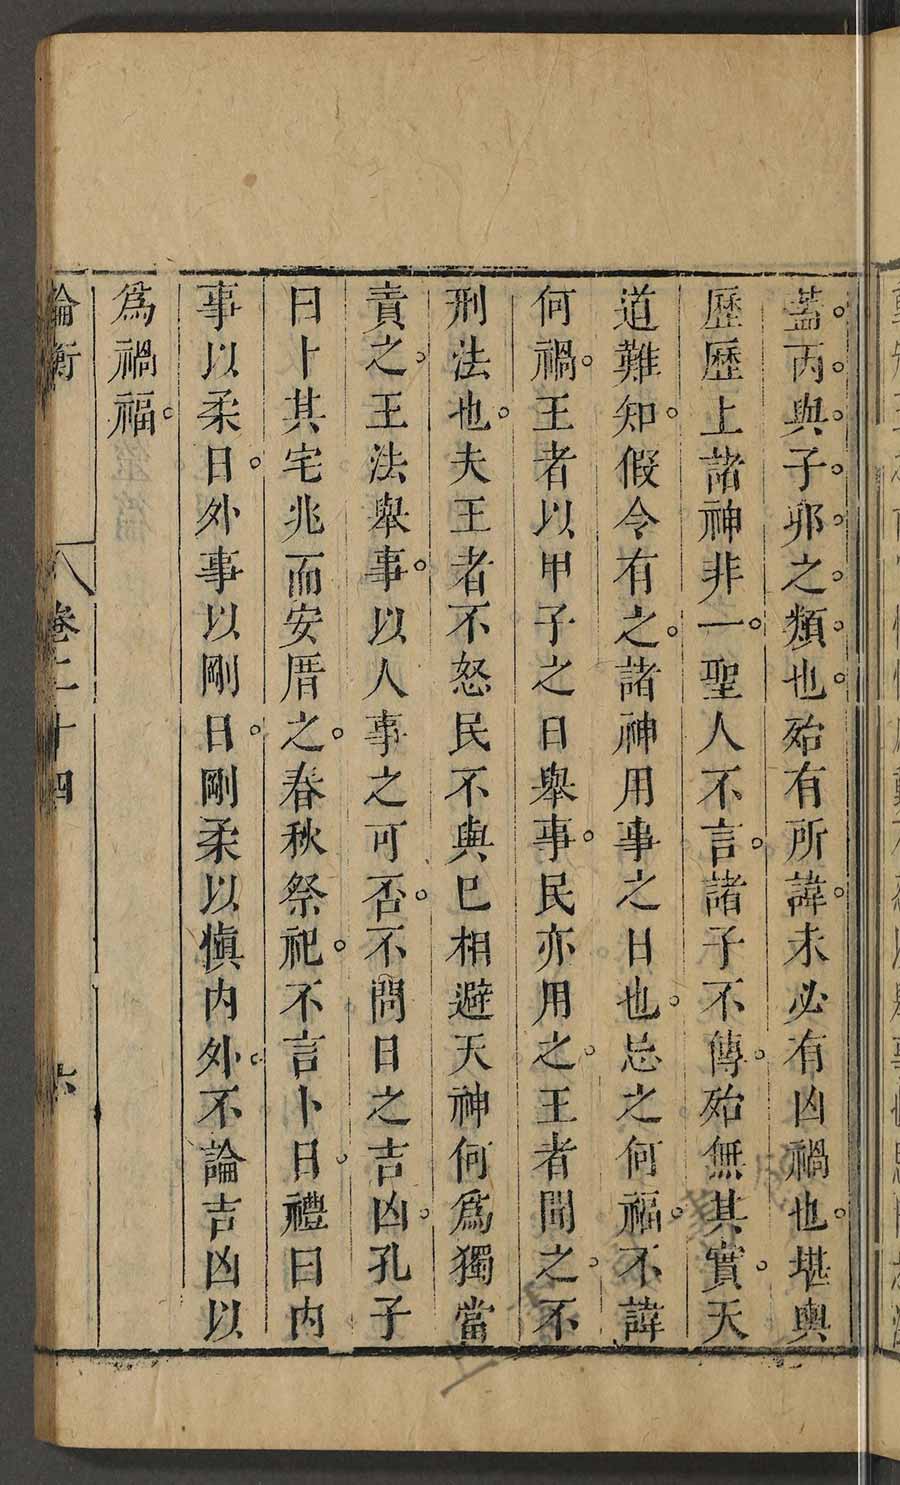 蓋。丙。與。子。夘。之。類。也。殆有所諱。未必有凶禍也。堪輿
歷歷上諸神非一。聖人不言。諸子不傳。殆無其實。天
道難知。假令有之。諸神用事之日也。忌之何福。不諱
何禍。王者以甲子之日舉事。民亦用之。王者聞之。不
刑法也。夫王者不怒民不與已相避天神何爲獨當
責之。王法舉事。以人事之可否。不問日之吉凶。孔子
曰卜其宅兆而安厝之。春秋祭祀。不言卜日。禮曰內
事以柔日。外事以剛日。剛柔以愼內外。不論吉凶以
爲禍福。
論衡 卷二十四 六